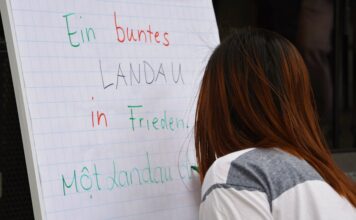 Ein buntes
LANDAU
in Frieden.
Một Landau